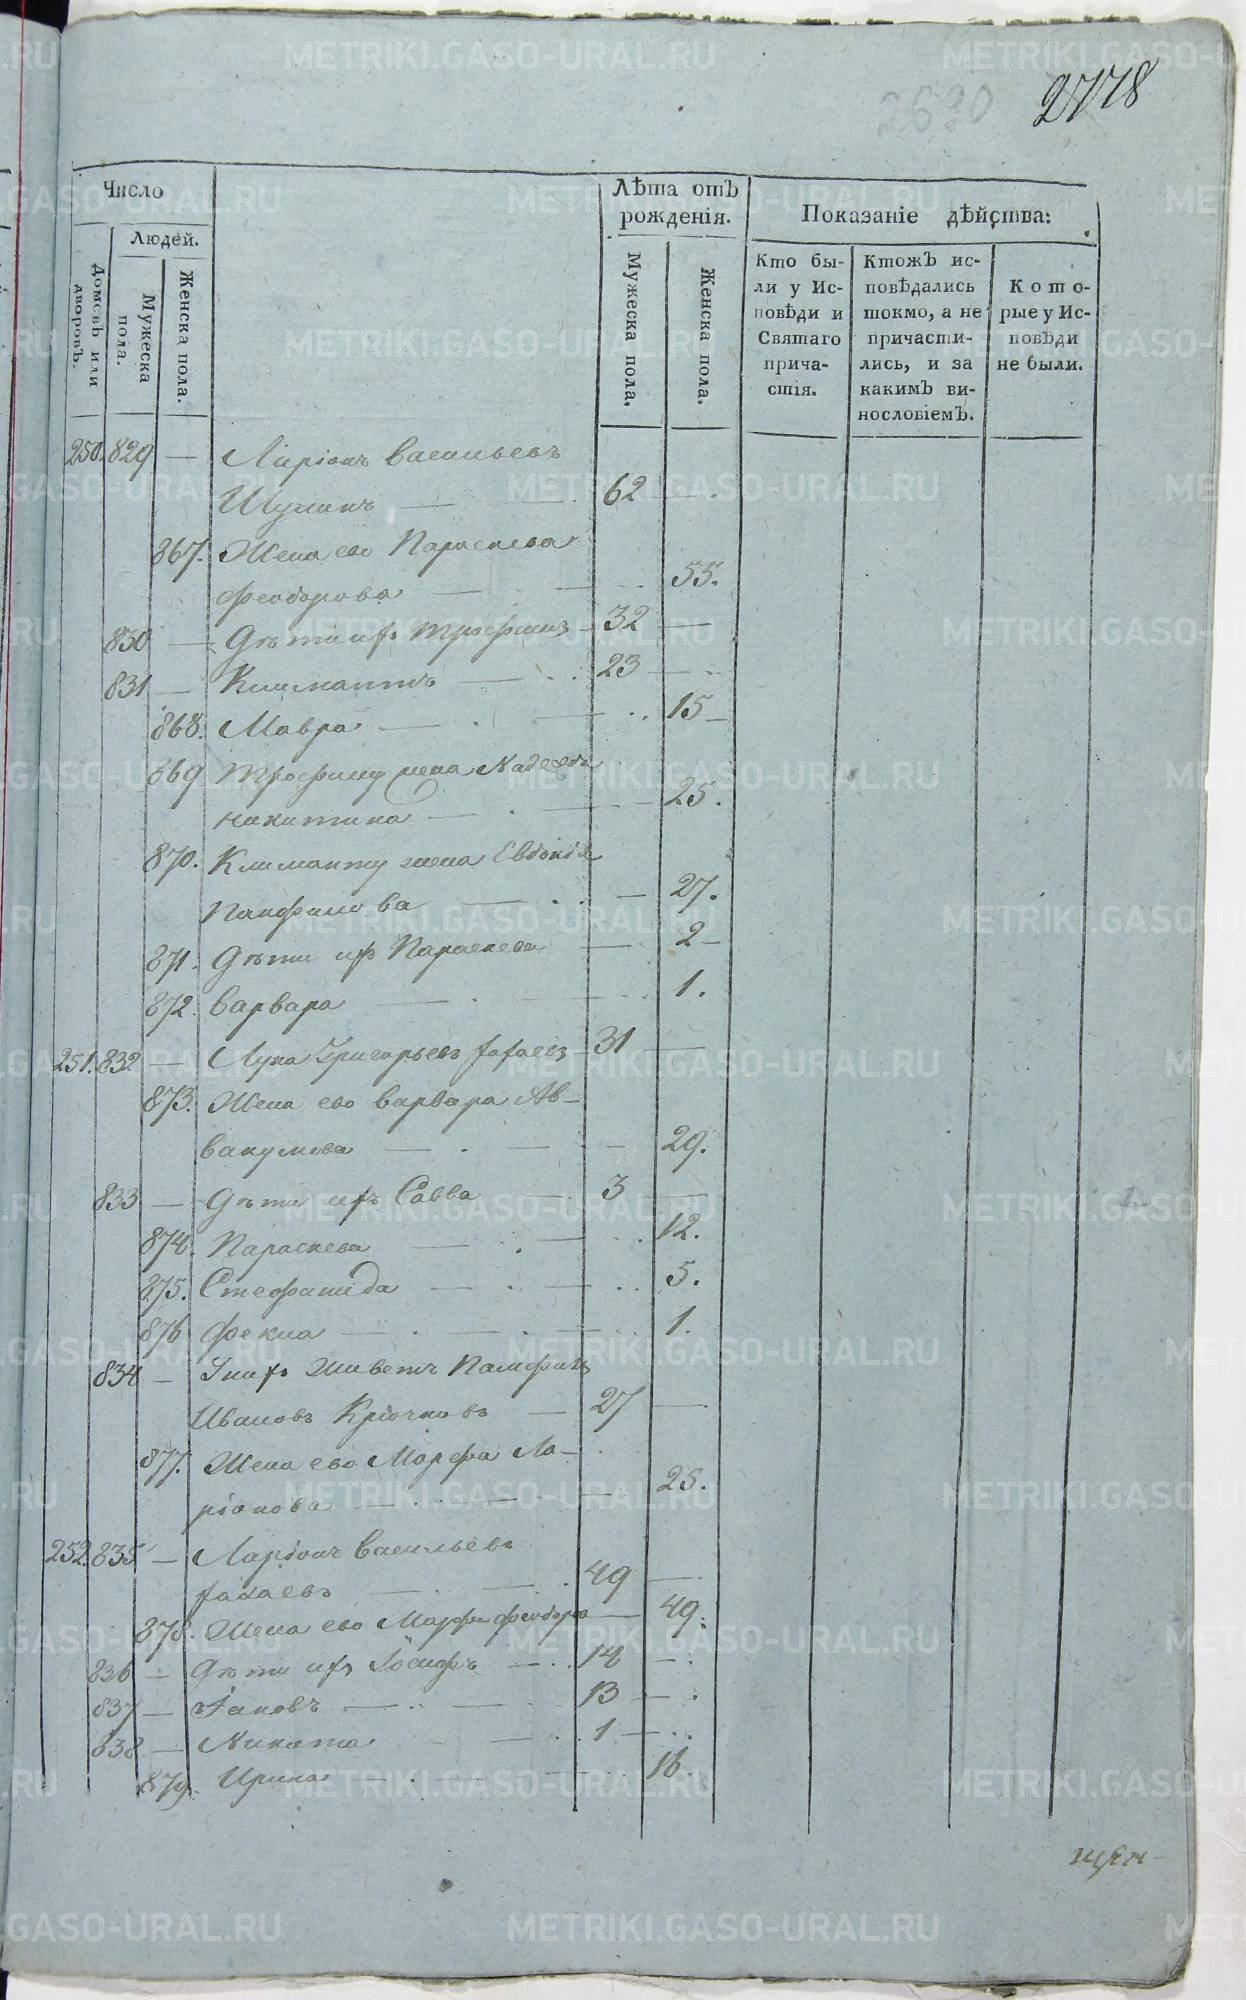 2630
2778
Число
Лѣта отъ рожденія.
Показаніе дѣйства:
Людей.
Домовъ или дворовъ.
Мужеска пола.
Женска пола.
Мужеска пола.
Женска пола.
Кто бы-
ли у Ис-
повѣди и
Святаго
прича-
стія.
Ктожъ ис-
повѣдались
токмо, а не
причасти-
лись, и за
какимъ ви-
нословіемъ.
Кото-
рые у Ис-
повѣди
не были.
250. 829 — Ларіонъ Васильевъ
Шулинъ — 62 —
867. Жена его Параскева
Феодорова — 55.
830 — Дѣти ихъ Трофимъ — 32 —
831 — Климантъ — 23 —
868. Мавра — 15 —
869 Трофиму жена Надежда
Никитина — 25.
870. Климанту жена Евдокія
Панфилова — 27.
871. Дѣти ихъ Параскева — 2 —
872. Варвара — 1.
251. 832 — Лука Григорьевъ — 31 —
873. Жена его Варвара Ав-
вакумова — 29.
833 — Дѣти ихъ Савва — 3 —
874. Параскева — 12.
875. Стефанида — 5.
876 Фекла — 1.
834 — У нихъ живетъ Памфилъ
Ивановъ Крючковъ — 27 —
877. Жена его Марфа Ла-
ріонова — 25.
252. 835 — Ларіонъ Васильевъ
49 —
878. Жена его Марфа Феодорова — 49.
836 — Дѣти ихъ Іосифъ — 14 —
837 — Іаковъ — 13 —
838 — Никита — 1 —
879. Ирина — 16.
METRIKI.GASO-URAL.RU